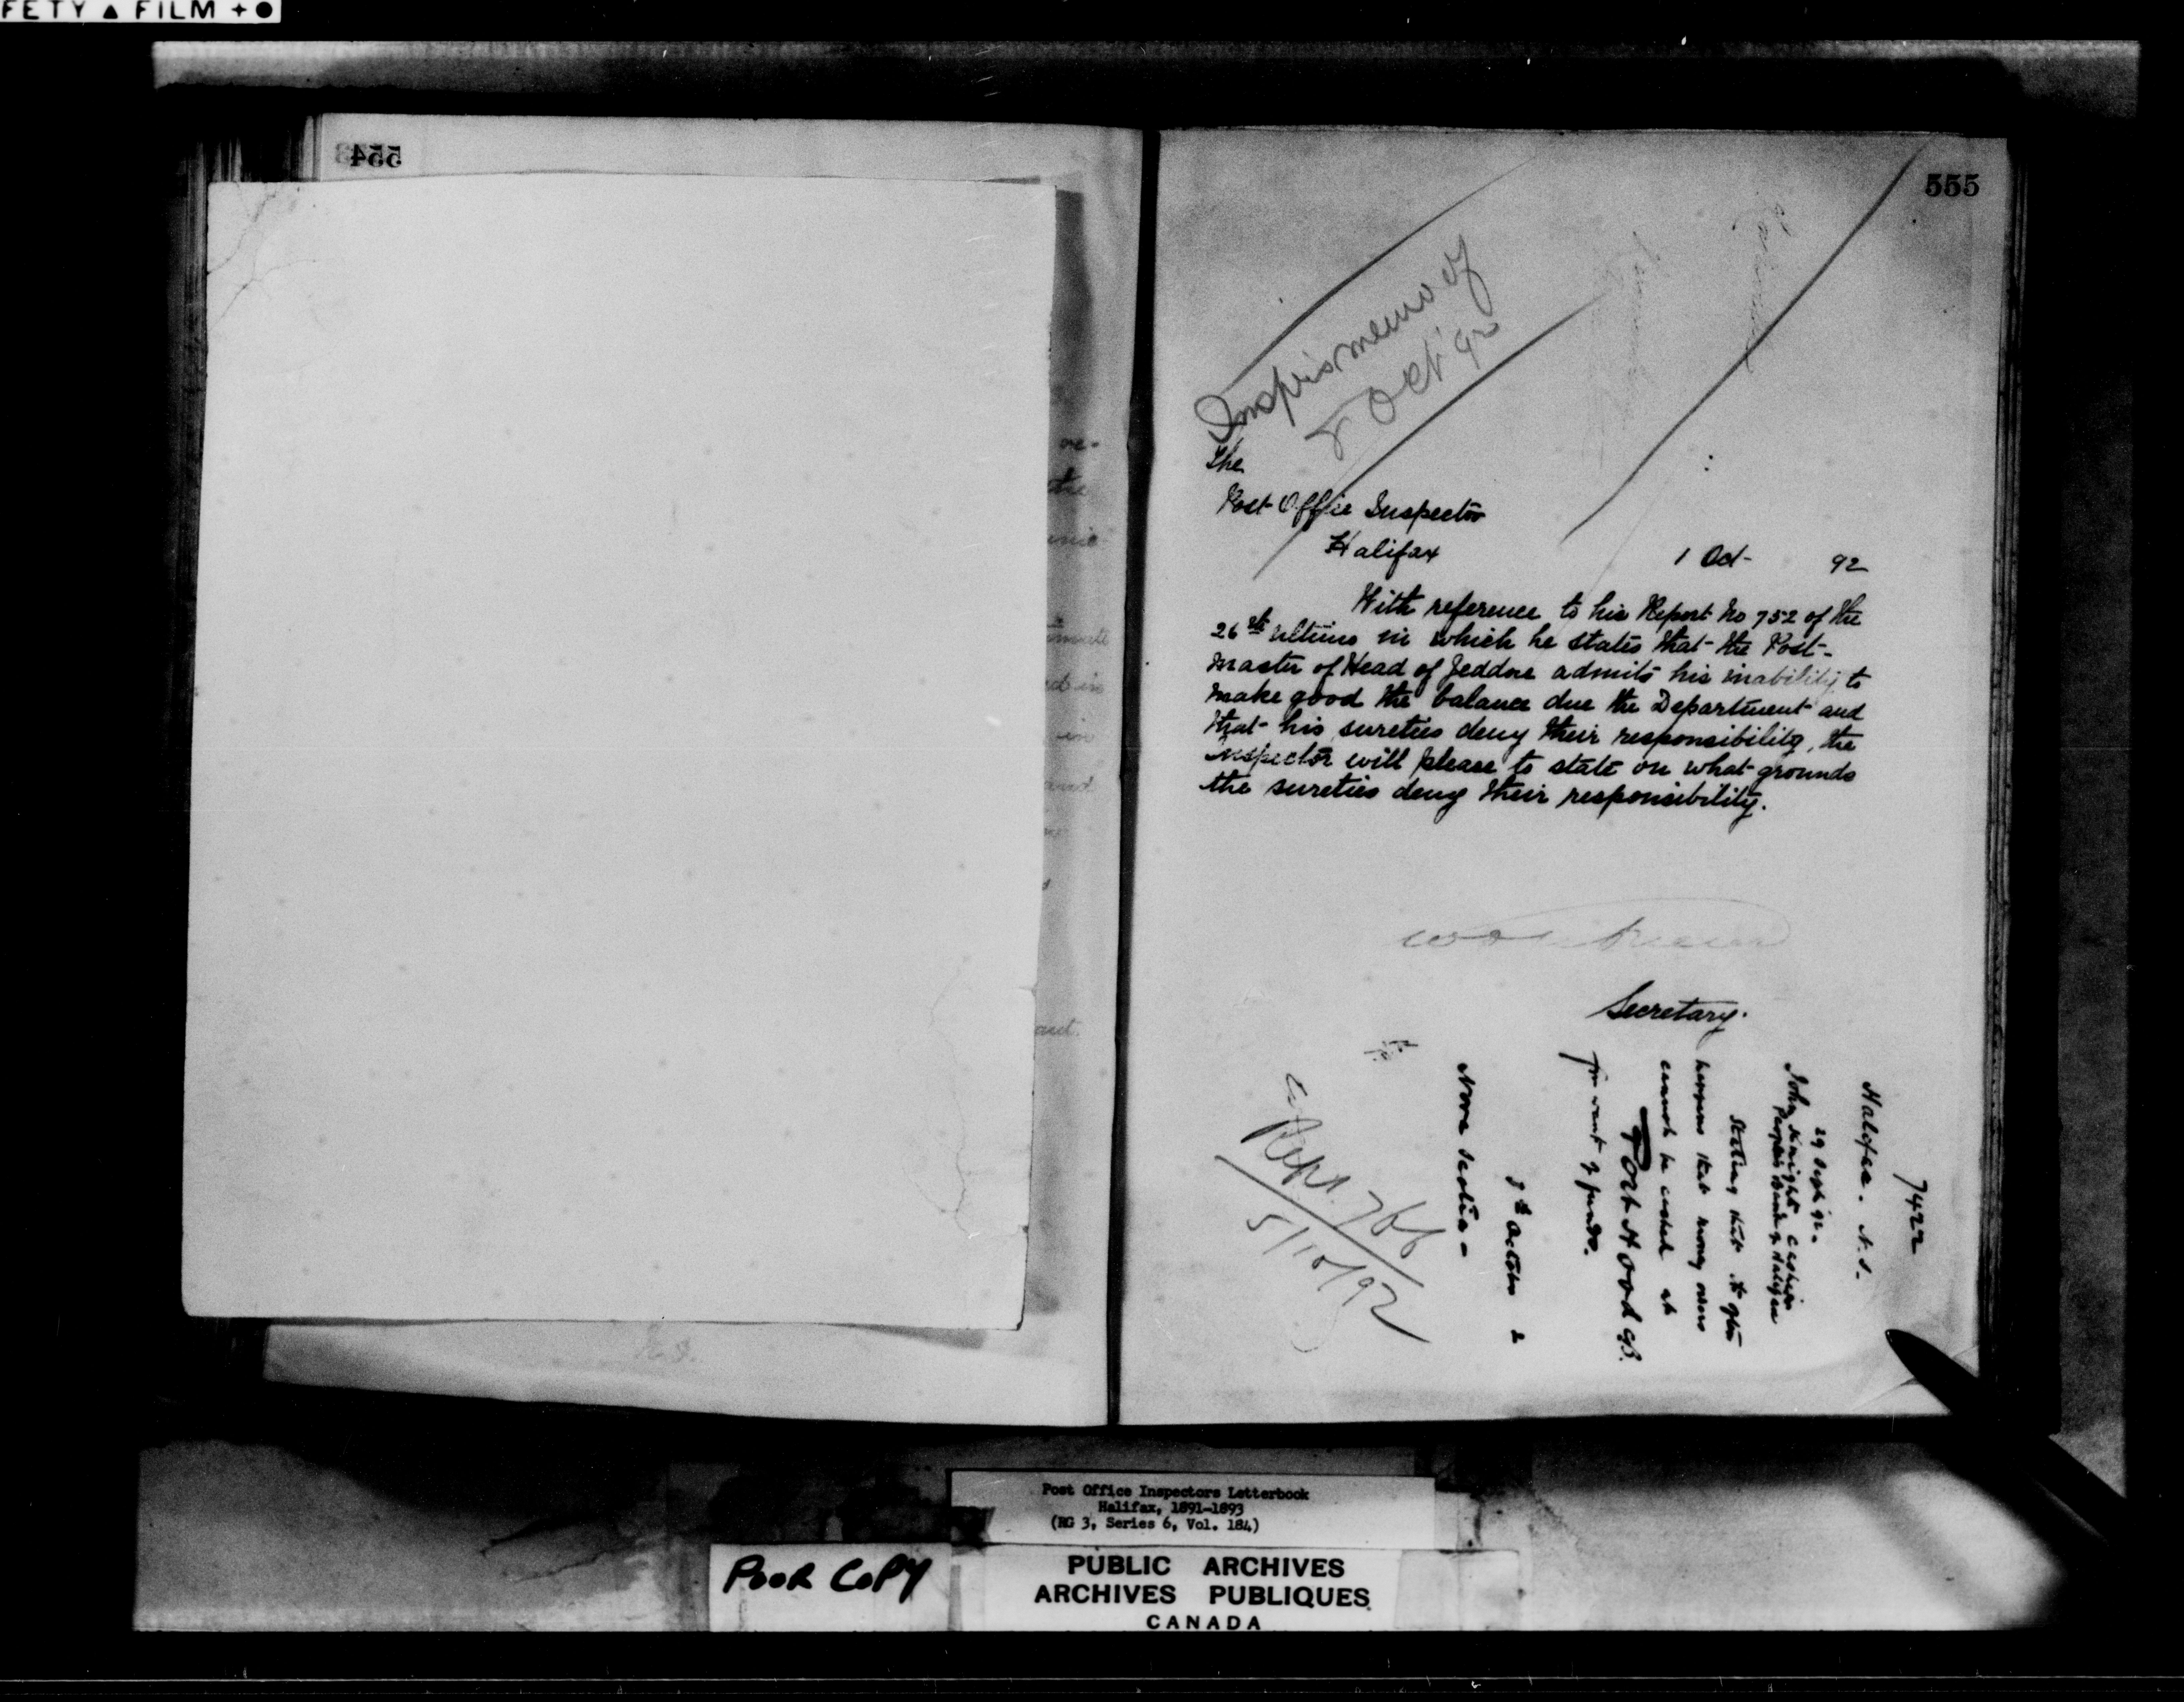 FETY ▲ FILM +●
554
555
Insp'r's memo of
8 Oct '92
The
Post Office Inspector
Halifax
1 Oct- 92
With reference to his Report No 752 of the
26th Ultimo in which he states that the Post-
master of Head of Jeddore admits his inability to
make good the balance due the Department and
that his sureties deny their responsibility, the
Inspector will please to state on what grounds
the sureties deny their responsibility.
Secretary.
7422
Halifax. N.S.
29 Sept 92.
John Knight Cashier
Peoples Bank of Halifax
Stating that it often
happens that money orders
cannot be cashed at
Port Hood CB.
for want of funds.
October 2
Nova Scotia-
Rept. 766
5/10/92
ve-
the
ed in
in
and
Post Office Inspectors Letterbook
Halifax, 1891-1893
(RG 3, Series 6, Vol. 184)
POOR COPY
PUBLIC ARCHIVES
ARCHIVES PUBLIQUES
CANADA